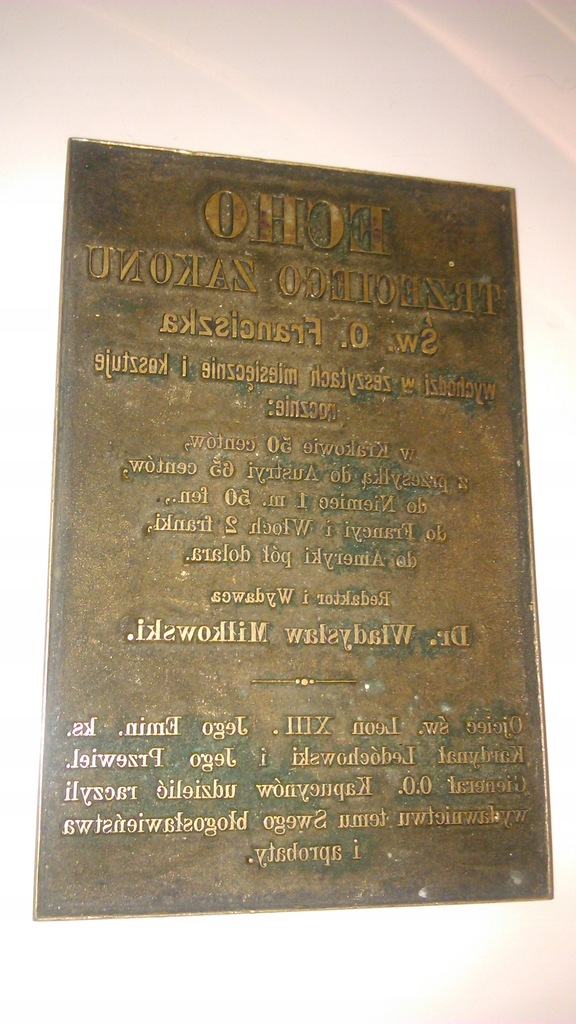 ECHO
TRZECIEGO ZAKONU
Św. O. Franciszka
wychodzi w zeszytach miesięcznie i kosztuje
rocznie:
w Krakowie 50 centów,
z przesyłką do Austryi 65 centów,
do Niemiec 1 m. 50 fen.,
do Francyi i Włoch 2 franki,
do Ameryki pół dolara.
Redaktor i Wydawca
Dr. Władysław Miłkowski.
Ojciec św. Leon XIII. Jego Emin. ks.
Kardynał Ledóchowski i Jego Przewiel.
Gienerał O.O. Kapucynów udzielić raczyli
wydawnictwu temu Swego błogosławieństwa
i aprobaty.